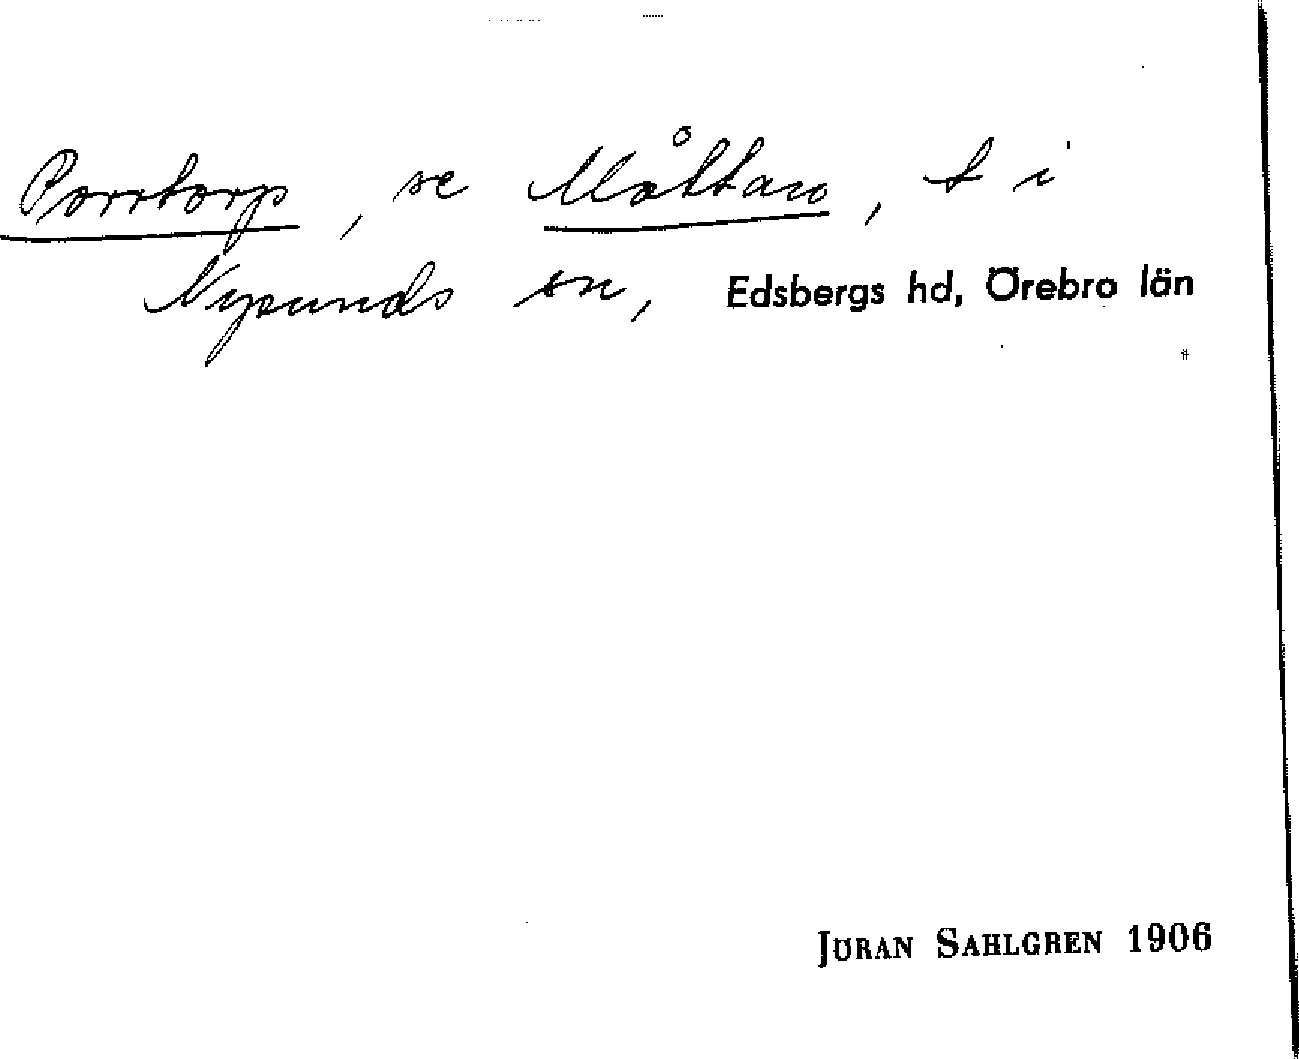 Porrtorp, se Måltaro, t i
Nysunds sn, Edsbergs hd, Örebro län
JÖRAN SAHLGREN 1906